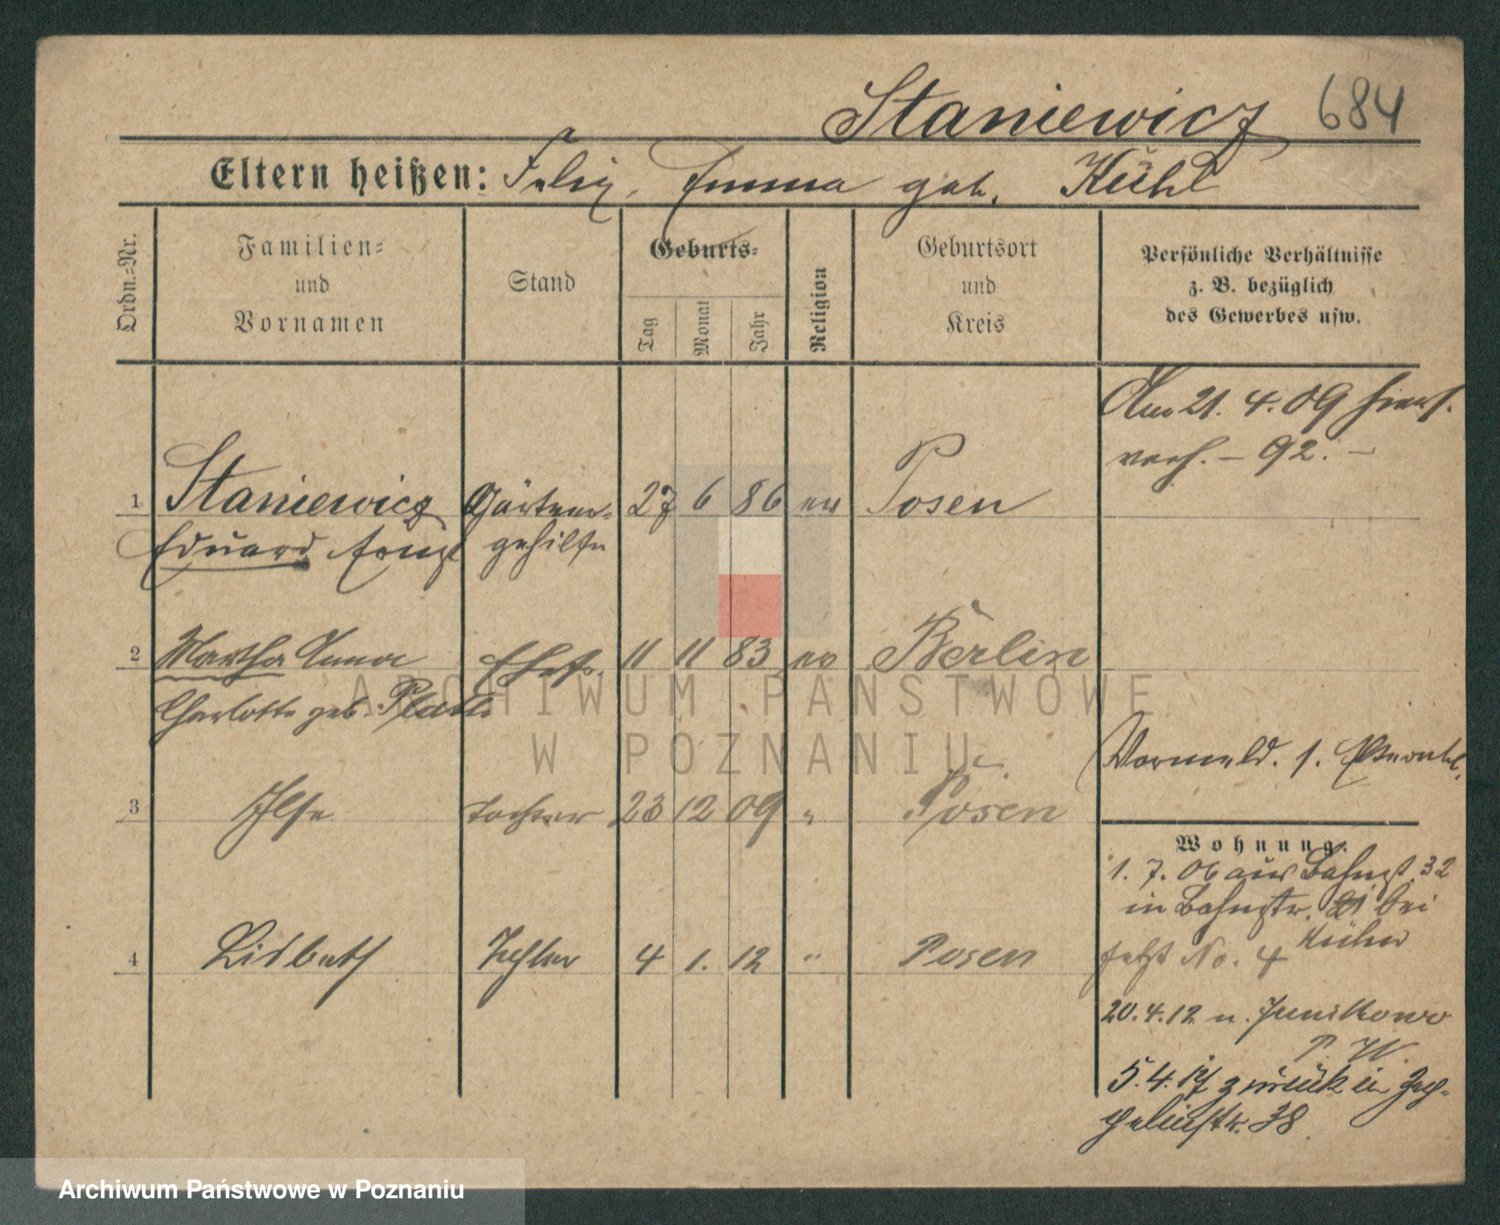 Staniewicz 684
Eltern heißen: Felix, Emma geb. Kühl
Ordn.=Nr.
Familien=
und
Vornamen
Stand
Geburts=
Tag
Monat
Jahr
Religion
Geburtsort
und
Kreis
Persönliche Verhältnisse
z. B. bezüglich
des Gewerbes usw.
Am 21. 4. 09
verh. – 92. –
1 Staniewicz Gärtner= 27 6 86 ev Posen
Eduard Ernst gehilfe
2 Martha Anna Ehefr. 11 11 83 ev Berlin
Charlotte geb.
Vormeld. s.
3 Ilse Tochter 23 12 09 " Posen
Wohnung.
1. 7. 06 aus Bahnst. 32
in Bahnstr. 21 bei
Kühn
4 Lisbeth Tochter 4 1. 12 " Posen
jetzt No. 4
20. 4. 12 n. Junikowo
P. W.
5. 4. 17 zurück in
38
ARCHIWUM PAŃSTWOWE
W POZNANIU
Archiwum Państwowe w Poznaniu